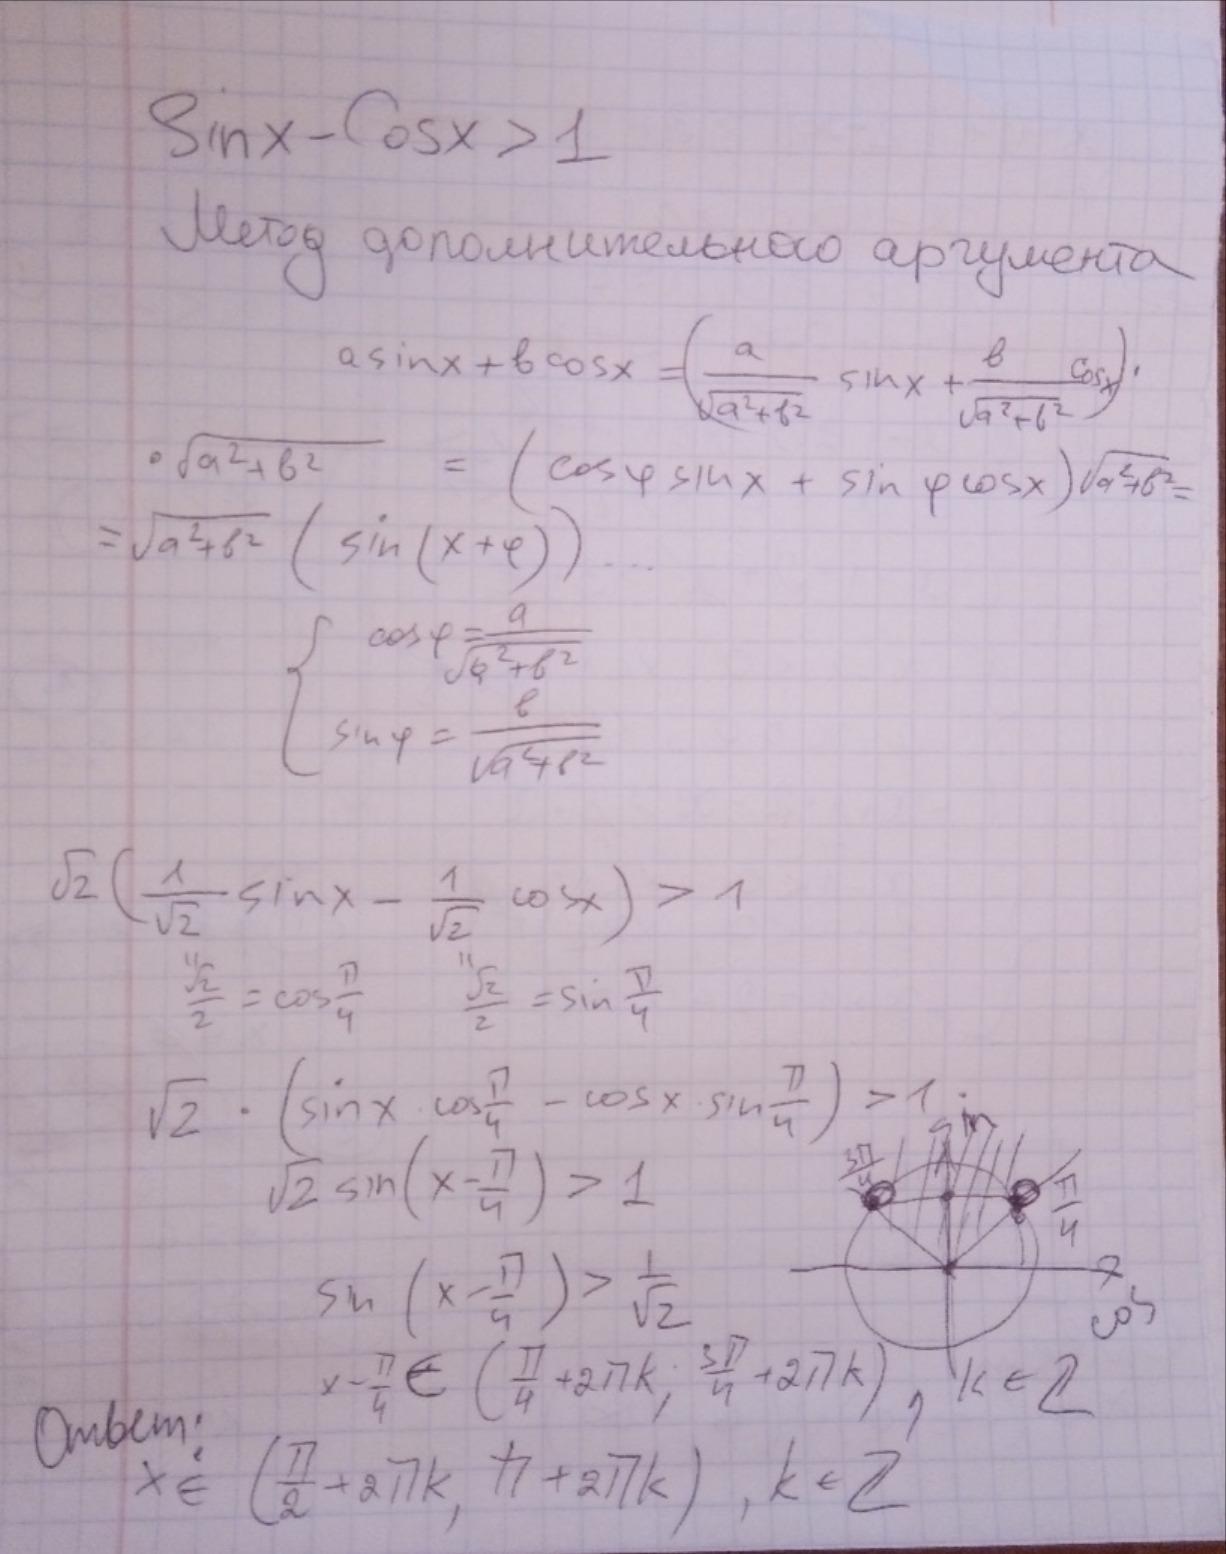 Sinx - Cosx > 1
Метод дополнительного аргумента
a sinx + b cosx = (a/√(a²+b²) sinx + b/√(a²+b²) cosx) ·
· √(a²+b²) = (cosφ sinx + sin φ cosx) √(a²+b²) =
= √(a²+b²) (sin(x+φ)) ...
{ cosφ = a/√(a²+b²)
sinφ = b/√(a²+b²)
√2 (1/√2 sinx - 1/√2 cosx) > 1
" √2/2 = cos π/4 " √2/2 = sin π/4
√2 · (sinx · cos π/4 - cosx · sin π/4) > 1
sin
√2 sin(x - π/4) > 1
3π/4 π/4
sin (x - π/4) > 1/√2
cos
x - π/4 ∈ (π/4 + 2πk; 3π/4 + 2πk), k ∈ Z
Ответ:
x ∈ (π/2 + 2πk, π + 2πk), k ∈ Z